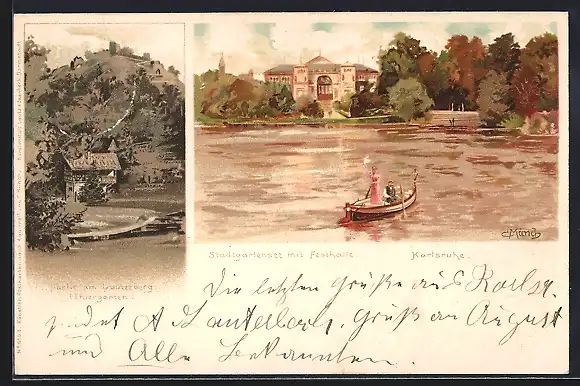 C. Münch
Stadtgartensee mit Festhalle. Karlsruhe.
Partie am Lauterberg
(Thiergarten).
Die letzten Grüße aus Karlsr.
sendet A Lauterbach, Gruß an August
und Alle Bekannten.